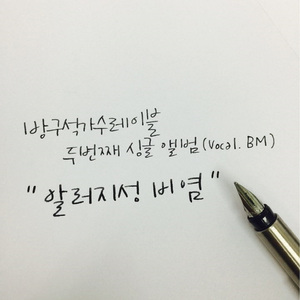 방구석가수레이블
두번째 싱글 앨범(Vocal. BM)
"알러지성 비염"